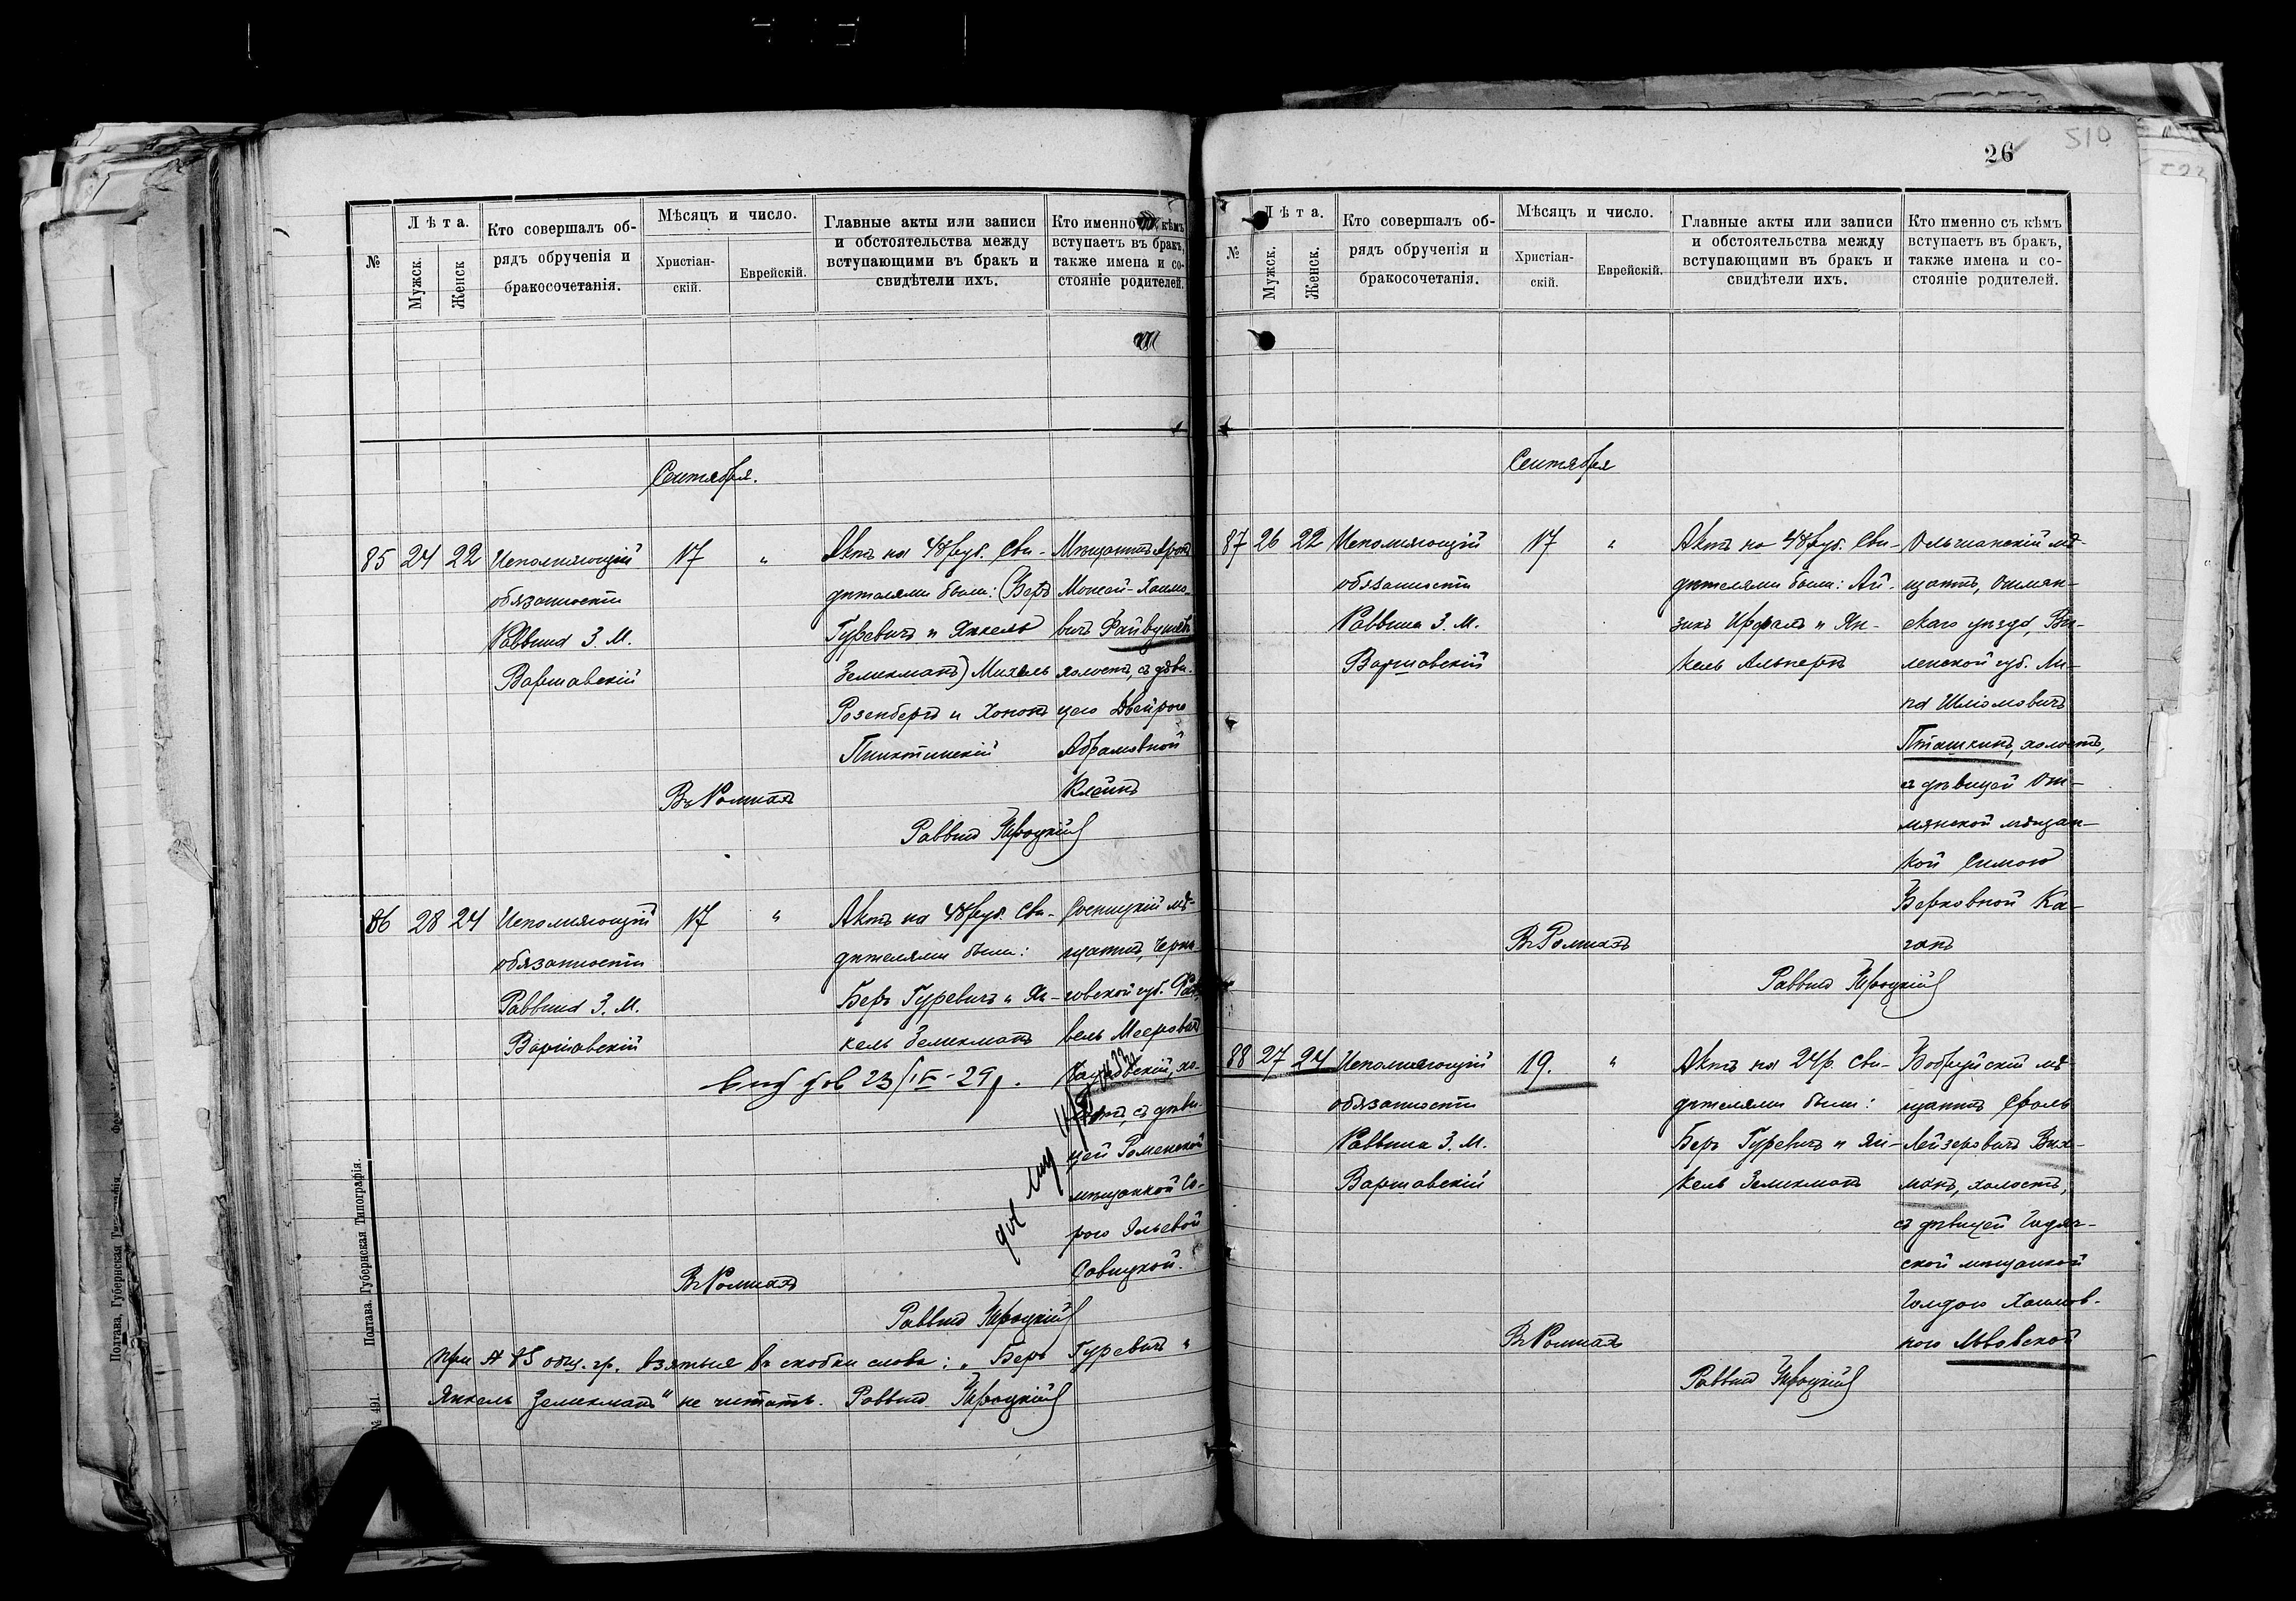 №
Лѣта.
Мужск.
Женск
Кто совершалъ об-
рядъ обрученія и
бракосочетанія.
Мѣсяцъ и число.
Христіан-
скій.
Еврейскій.
Главные акты или записи
и обстоятельства между
вступающими въ бракъ и
свидѣтели ихъ.
Кто именно кѣмъ
вступаетъ въ бракъ,
также имена и со-
стояніе родителей.
Сентября.
85 24 22
Исполняющій
обязанности
Раввина З. М.
Варшавскій
17 "
Актъ на 48 руб. Сви-
дѣтелями были: (Беръ
Гуревичъ и Янкель
Зеликманъ) Михель
Розенбергъ и Хононъ
Мѣщанинъ Аронъ
Мовсей-Хаимо-
вичъ
холостъ, съ дѣви-
цею Двейрою
Абрамовной
Клейнъ
Въ Ромнахъ
Раввинъ
86 28 24
Исполняющій
обязанности
Раввина З. М.
Варшавскій
17 "
Актъ на 48 руб. Сви-
дѣтелями были:
Беръ Гуревичъ и Ян-
кель Зеликманъ
Сосницкій мѣ-
щанинъ, Черни-
говской губ.
вель Мееровичъ
хо-
лостъ, съ дѣви-
цей Роменской
мѣщанкой Са-
рою Эльевой
Савицкой.
23/IV-29
Въ Ромнахъ
Раввинъ
При № 85 общ. гр. взятыя въ скобки слова: "Беръ Гуревичъ и
Янкель Зеликманъ" не читать. Раввинъ
Полтава. Губернская Типографія.
№ 491.
Полтава, Губернская
510
26
№
Лѣта.
Мужск.
Женск.
Кто совершалъ об-
рядъ обрученія и
бракосочетанія.
Мѣсяцъ и число.
Христіан-
скій.
Еврейскій.
Главные акты или записи
и обстоятельства между
вступающими въ бракъ и
свидѣтели ихъ.
Кто именно съ кѣмъ
вступаетъ въ бракъ,
также имена и со-
стояніе родителей.
Сентября
87 26 22
Исполняющій
обязанности
Раввина З. М.
Варшавскій
17 "
Актъ на 48 руб. Сви-
дѣтелями были: Ай-
зикъ и Ян-
кель Альперинъ
Ольшанскій мѣ-
щанинъ, Ошмян-
скаго уѣзда, Ви-
ленской губ. Ли-
па Шліомовичъ
Пташкинъ, холостъ,
съ дѣвицей Ош-
мянской мѣщан-
кой Симою
Берковной Ка-
ганъ
Въ Ромнахъ
Раввинъ
88 27 24
Исполняющій
обязанности
Раввина З. М.
Варшавскій
19. "
Актъ на 24 р. Сви-
дѣтелями были:
Беръ Гуревичъ и Ян-
кель Зеликманъ
Бобруйскій мѣ-
щанинъ Сроль
Лейзеровичъ Вих-
манъ, холостъ,
съ дѣвицей Гадяч-
ской мѣщанкой
Голдою Хаимов-
ною Львовской
Въ Ромнахъ
Раввинъ